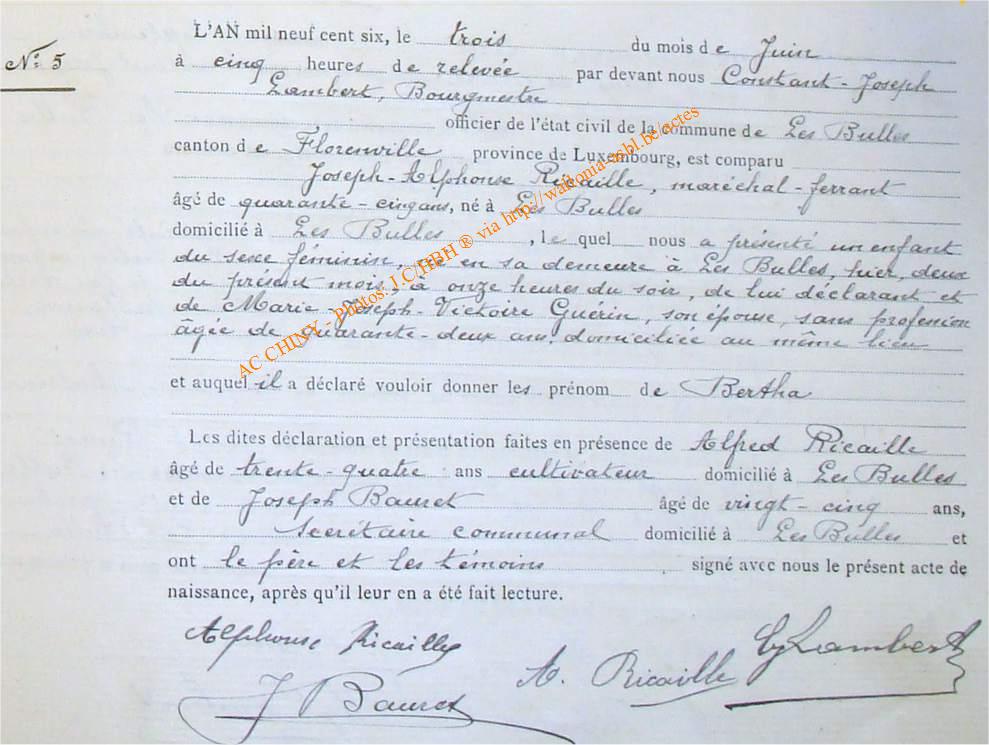 L'AN mil neuf cent six, le trois du mois de Juin
N° 5
à cinq heures de relevée par devant nous Constant-Joseph
Lambert, Bourgmestre
officier de l'état civil de la commune de Les Bulles
canton de Florenville province de Luxembourg, est comparu
Joseph-Alphonse Ricaille, maréchal-ferrant
âgé de quarante-cinq ans, né à Les Bulles
domicilié à Les Bulles, lequel nous a présenté un enfant
du sexe féminin, née en sa demeure à Les Bulles, hier, deux
du présent mois, à onze heures du soir, de lui déclarant et
de Marie-Joseph-Victoire Guérin, son épouse, sans profession
âgée de quarante-deux ans, domiciliée au même lieu
et auquel il a déclaré vouloir donner les prénom de Bertha
Les dites déclaration et présentation faites en présence de Alfred Ricaille
âgé de trente-quatre ans cultivateur domicilié à Les Bulles
et de Joseph Bauret âgé de vingt-cinq ans,
secrétaire communal domicilié à Les Bulles et
ont le père et les témoins signé avec nous le présent acte de
naissance, après qu'il leur en a été fait lecture.
Alphonse Ricaille
A. Ricaille
Lambert
J Bauret
AC CHINY - Photos: J.C/HBH ® via http://wallonia-asbl.be/actes